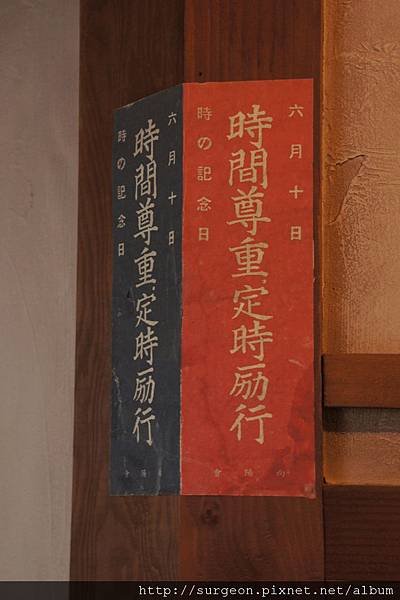 六月十日
時間尊重、定時励行
時の記念日
向陽會
六月十日
時間尊重、定時励行
時の記念日
http://surgeon.pixnet.net/album